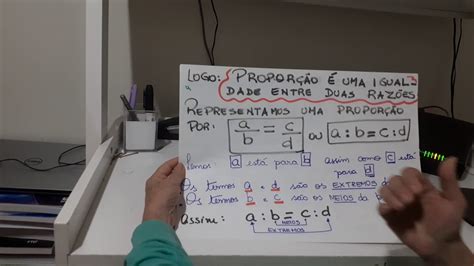 LOGO: PROPORÇÃO É UMA IGUAL-
DADE ENTRE DUAS RAZÕES
REPRESENTAMOS UMA PROPORÇÃO
POR: a/b = c/d ou a:b=c:d
Lemos: a está para b assim como c está
para d
Os termos a e d são os EXTREMOS da
Os termos b e c são os MEIOS da
Assim: a:b=c:d
MEIOS
EXTREMOS